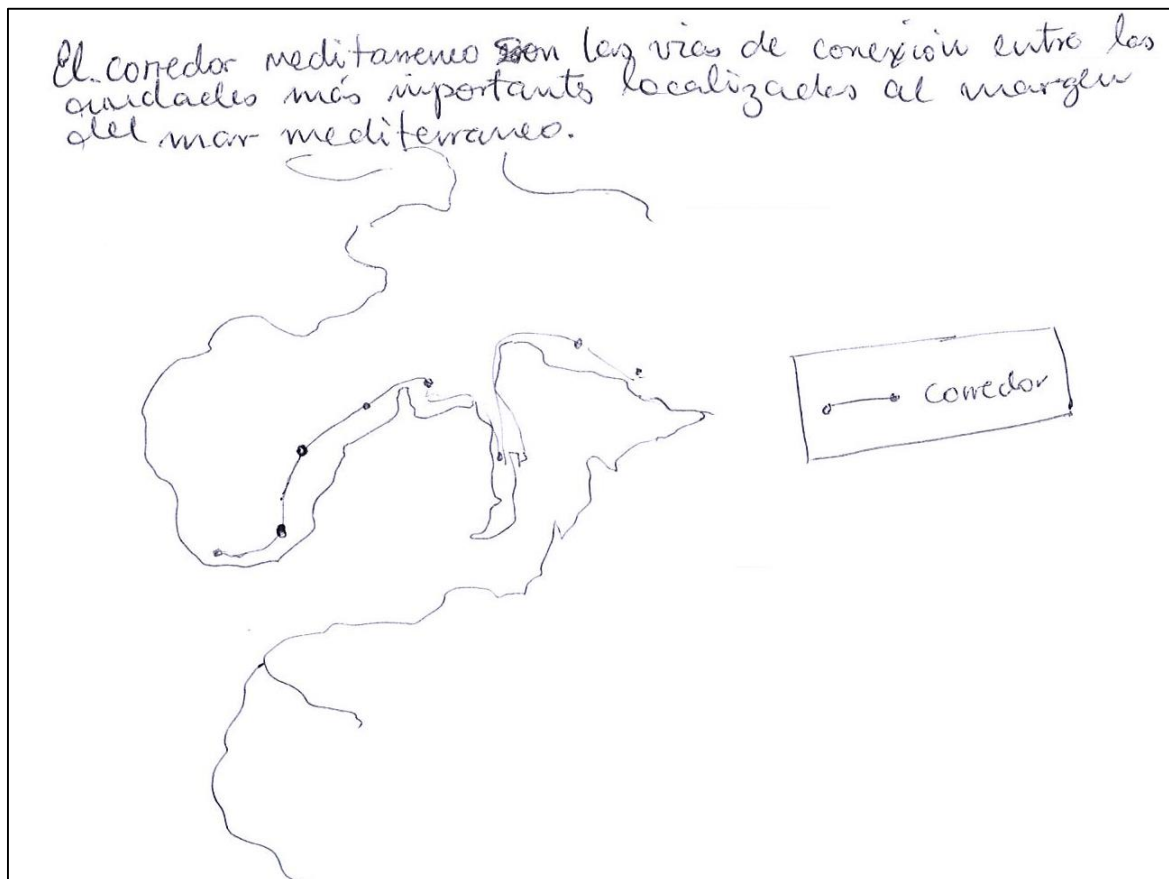 El corredor meditarreneo son las vias de conexión entre las
ciudades más importantes localizadas al margen
del mar mediterraneo.
corredor